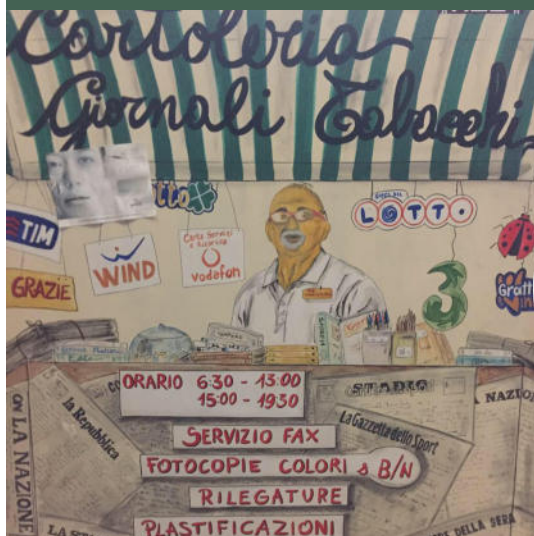 Cartoleria
Giornali Tabacchi
TIM
GRAZIE
WIND
Carta Servizi
e Ricarica
vodafon
LOTTO
3
Gratta
ORARIO 6:30 - 13:00
15:00 - 19:30
SERVIZIO FAX
FOTOCOPIE COLORI & B/N
RILEGATURE
PLASTIFICAZIONI
la Repubblica
LA NAZIONE
STADIO
La Gazzetta dello Sport
A NAZIO
DELLA SERA